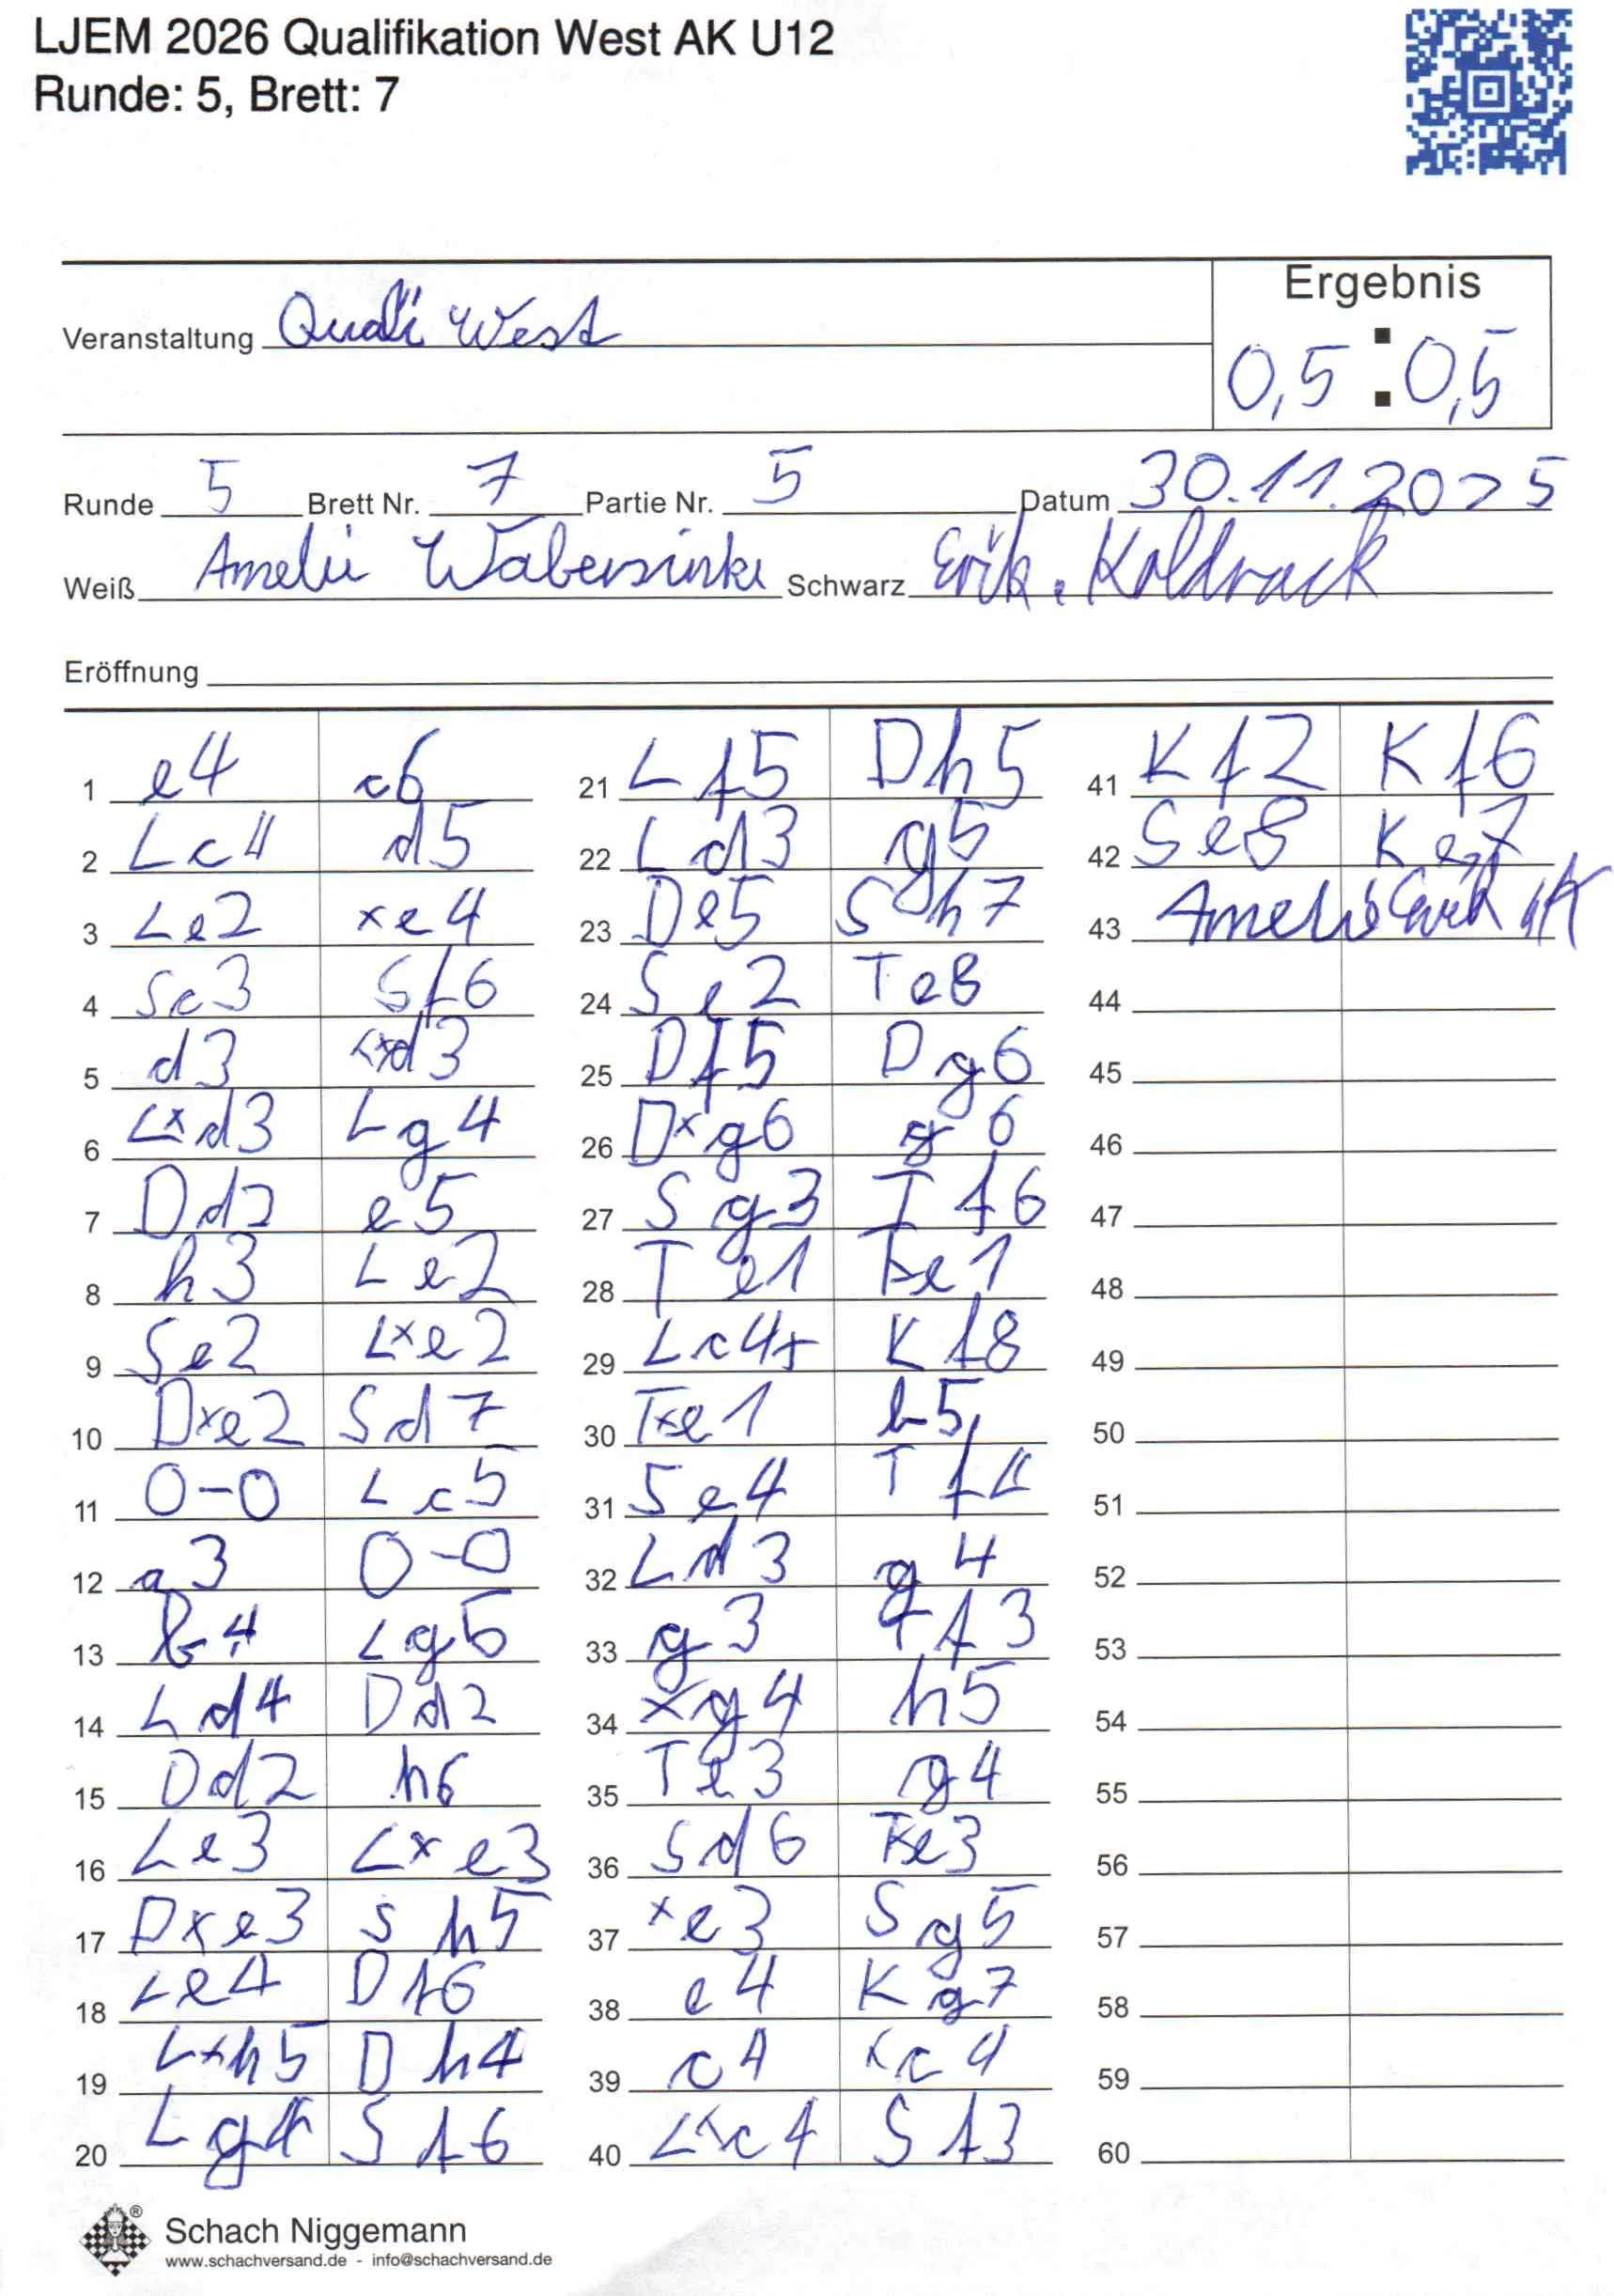 LJEM 2026 Qualifikation West AK U12
Runde: 5, Brett: 7
Ergebnis
Veranstaltung Quali West
0,5 : 0,5
Runde 5 Brett Nr. 7 Partie Nr. 5 Datum 30.11.2025
Weiß Amelie Schwarz Erik. Koldrack
Eröffnung
1 e4 c6
2 Lc4 d5
3 Le2 xe4
4 Sc3 Sf6
5 d3 xd3
6 Lxd3 Lg4
7 Dd2 e5
8 h3 Le2
9 Se2 Lxe2
10 Dxe2 Sd7
11 0-0 Lc5
12 a3 0-0
13 b4 Lg5
14 Ld4 Dd2
15 Dd2 h6
16 Le3 Lxe3
17 Dxe3 Sh5
18 Le4 Df6
19 Lxh5 Dh4
20 Lg4 Sf6
21 Lf5 Dh5
22 Ld3 g5
23 De5 Sh7
24 Se2 Te8
25 Df5 Dg6
26 Dxg6 g6
27 Sg3 Tf6
28 Te1 Txe1
29 Lc4+ Kf8
30 Txe1 b5
31 Se4 Tf4
32 Ld3 g4
33 g3 Tf3
34 xg4 h5
35 Te3 g4
36 Sd6 Txe3
37 xe3 Sg5
38 e4 Kg7
39 c4 xc4
40 Lxc4 Sf3
41 Kf2 Kf6
42 Se8 Ke7
43 Amelie Erik
44
45
46
47
48
49
50
51
52
53
54
55
56
57
58
59
60
Schach Niggemann
www.schachversand.de - info@schachversand.de